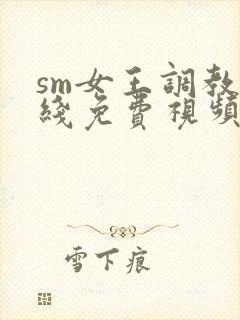 sm女王調教
綫免費視頻
雪下痕